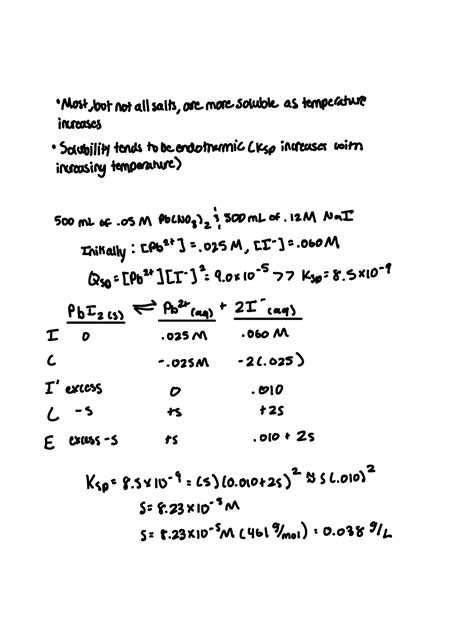 • Most, but not all salts, are more soluble as temperature
increases
• Solubility tends to be endothermic (Ksp increases with
increasing temperature)
500 mL of .05 M Pb(NO₃)₂ & 500 mL of .12M NaI
Initially: [Pb²⁺] = .025 M, [I⁻] = .060 M
Qsp = [Pb²⁺][I⁻]² = 9.0 x 10⁻⁵ >> Ksp = 8.5 x 10⁻⁹
PbI₂ (s) ⇌ Pb²⁺ (aq) + 2I⁻ (aq)
I 0 .025 M .060 M
C -.025M -2(.025)
I' excess 0 .010
C -s +s +2s
E excess -s +s .010 + 2s
Ksp = 8.5 x 10⁻⁹ = (s)(0.010+2s)² ≈ s(.010)²
s = 8.23 x 10⁻⁵ M
s = 8.23 x 10⁻⁵ M (461 g/mol) = 0.038 g/L